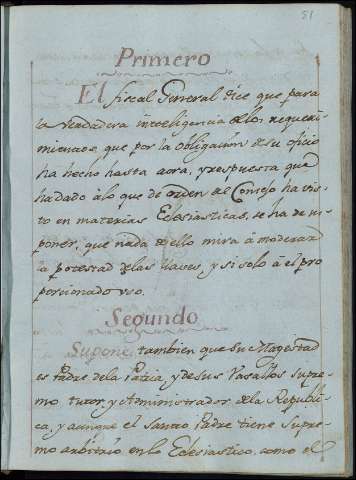 51
Primero
El fiscal General dice que para
la verdadera inteligencia de los requeri
mientos, que por la obligacion de su oficio
ha hecho hasta aora, y respuesta que
ha dado à lo que de orden del Consejo ha vis
to en materias Eclesiasticas, se ha de su
poner, que nada de ello mira à moderar
la potestad de las llaves, y si solo à el pro
porcionado uso.
Segundo
Supone tambien que su Magestad
es Padre de la Patria, y de sus Vasallos supre
mo tutor y Administrador de la Republi
ca, y aunque el santo Padre tiene supre
mo arbitrio en lo Eclesiastico, como el